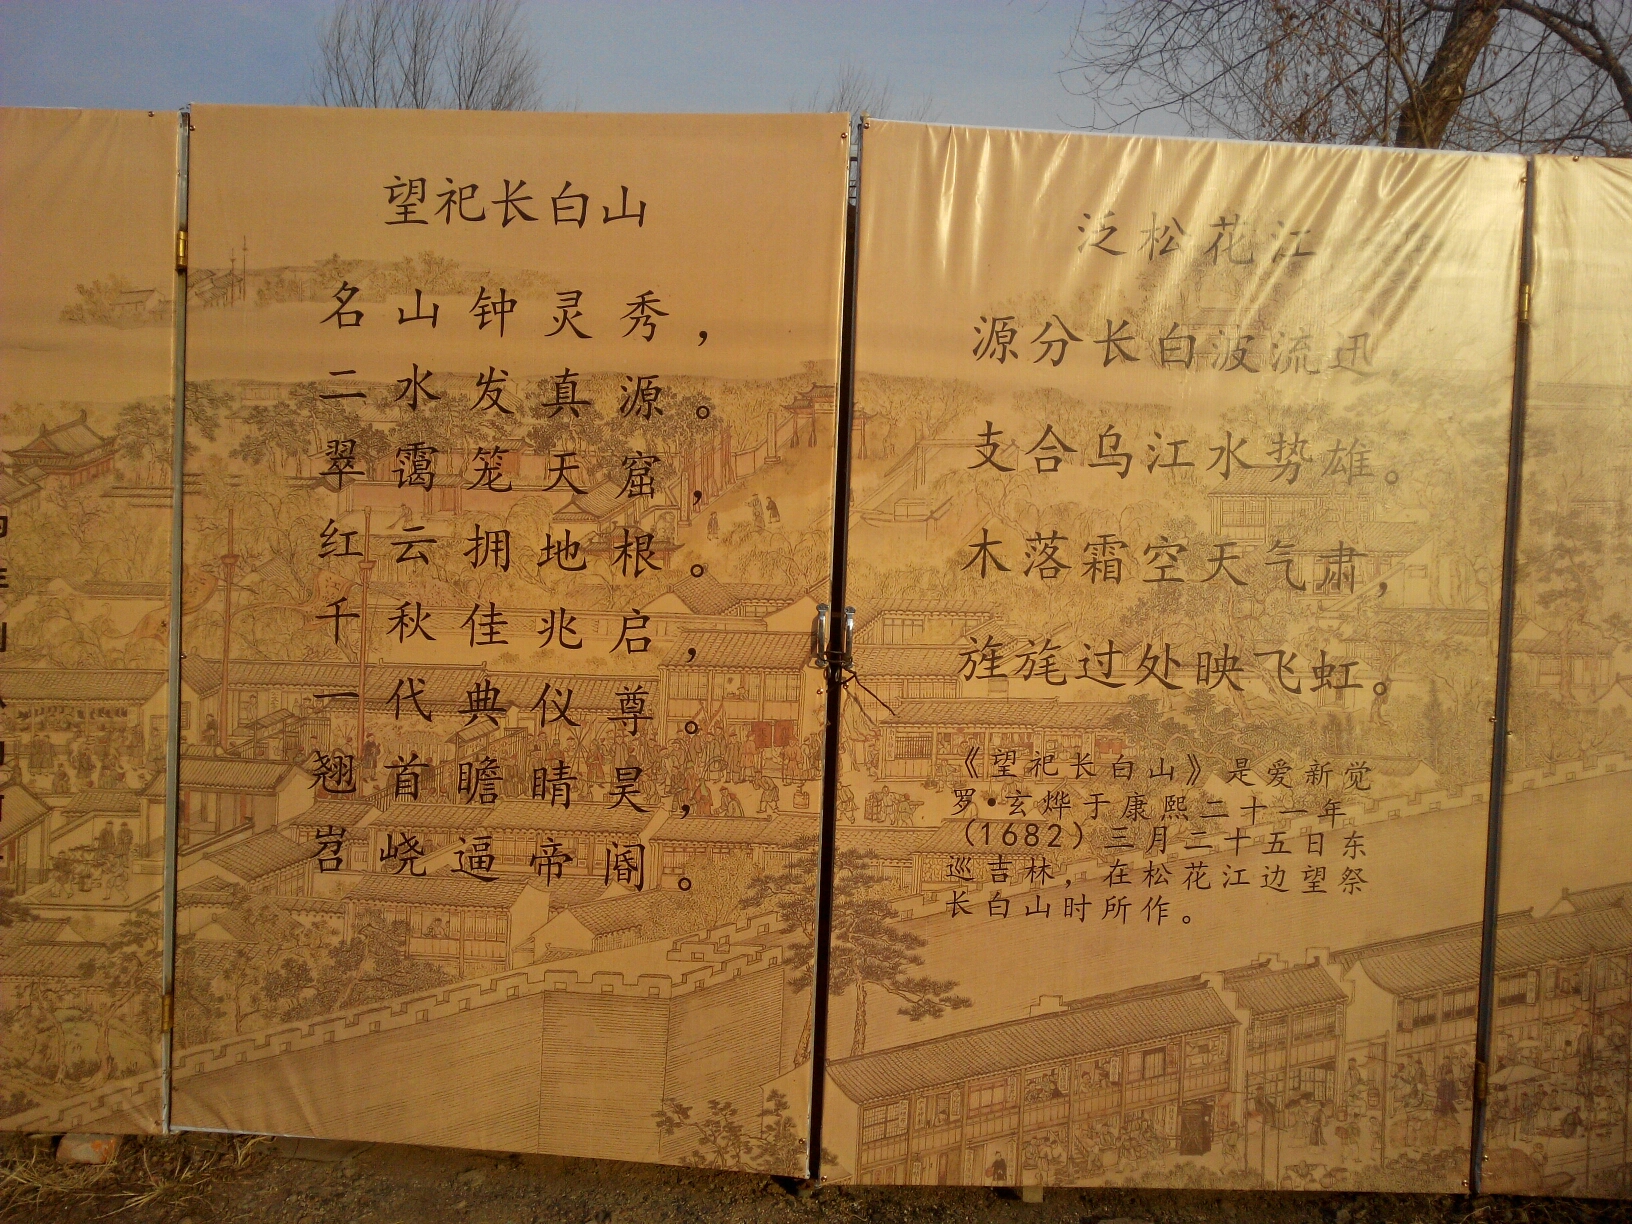 望祀长白山
名山钟灵秀，
二水发真源。
翠霭笼天窟，
红云拥地根。
千秋佳兆启，
一代典仪尊。
翘首瞻晴昊，
岧峣逼帝阍。
泛松花江
源分长白波流迅
支合乌江水势雄。
木落霜空天气肃，
旌旄过处映飞虹。
《望祀长白山》是爱新觉
罗·玄烨于康熙二十一年
（1682）三月二十五日东
巡吉林，在松花江边望祭
长白山时所作。